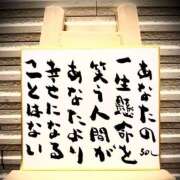 あなたの
一生懸命を
笑う人間が
あなたより
幸せになる
ことはない
SOL